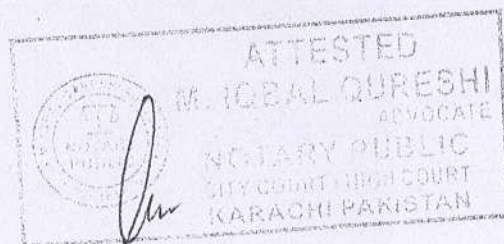 ATTESTED
M. IQBAL QURESHI
ADVOCATE
NOTARY PUBLIC
CITY COURT / HIGH COURT
KARACHI PAKISTAN
NOTARY
PUBLIC